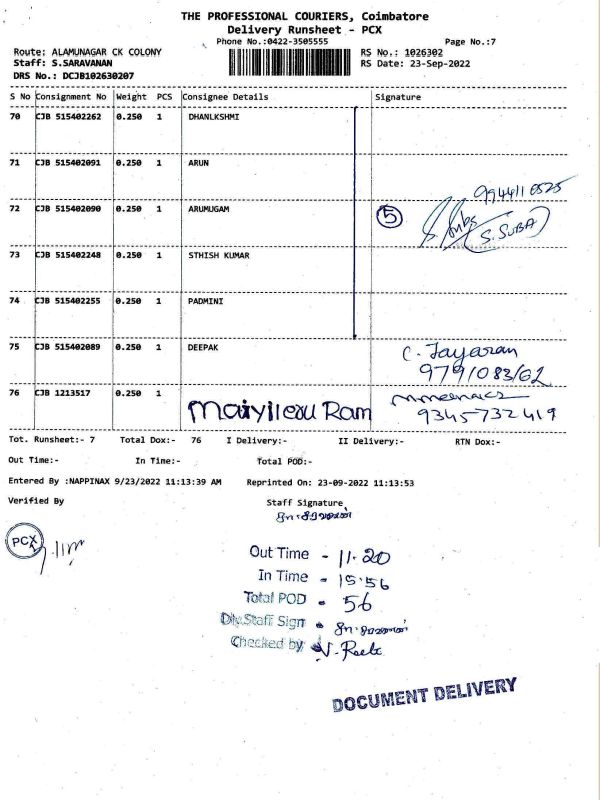 THE PROFESSIONAL COURIERS, Coimbatore
Delivery Runsheet - PCX
Phone No.:0422-3505555 Page No.:7
Route: ALAMUNAGAR CK COLONY RS No.: 1026302
Staff: S.SARAVANAN RS Date: 23-Sep-2022
DRS No.: DCJB102630207
S No Consignment No Weight PCS Consignee Details Signature
70 CJB 515402262 0.250 1 DHANLKSHMI
71 CJB 515402091 0.250 1 ARUN
9944110525
72 CJB 515402090 0.250 1 ARUMUGAM 5
(S. SUBA)
73 CJB 515402248 0.250 1 STHISH KUMAR
74 CJB 515402255 0.250 1 PADMINI
75 CJB 515402089 0.250 1 DEEPAK C. Jayaran
9791083162
76 CJB 1213517 0.250 1
9345732419
Tot. Runsheet:- 7 Total Dox:- 76 I Delivery:- II Delivery:- RTN Dox:-
Out Time:- In Time:- Total POD:-
Entered By :NAPPINAX 9/23/2022 11:13:39 AM Reprinted On: 23-09-2022 11:13:53
Verified By Staff Signature
PCX
Out Time - 11.20
In Time - 15.56
Total POD - 56
Dly.Staff Sign
Checked by
DOCUMENT DELIVERY